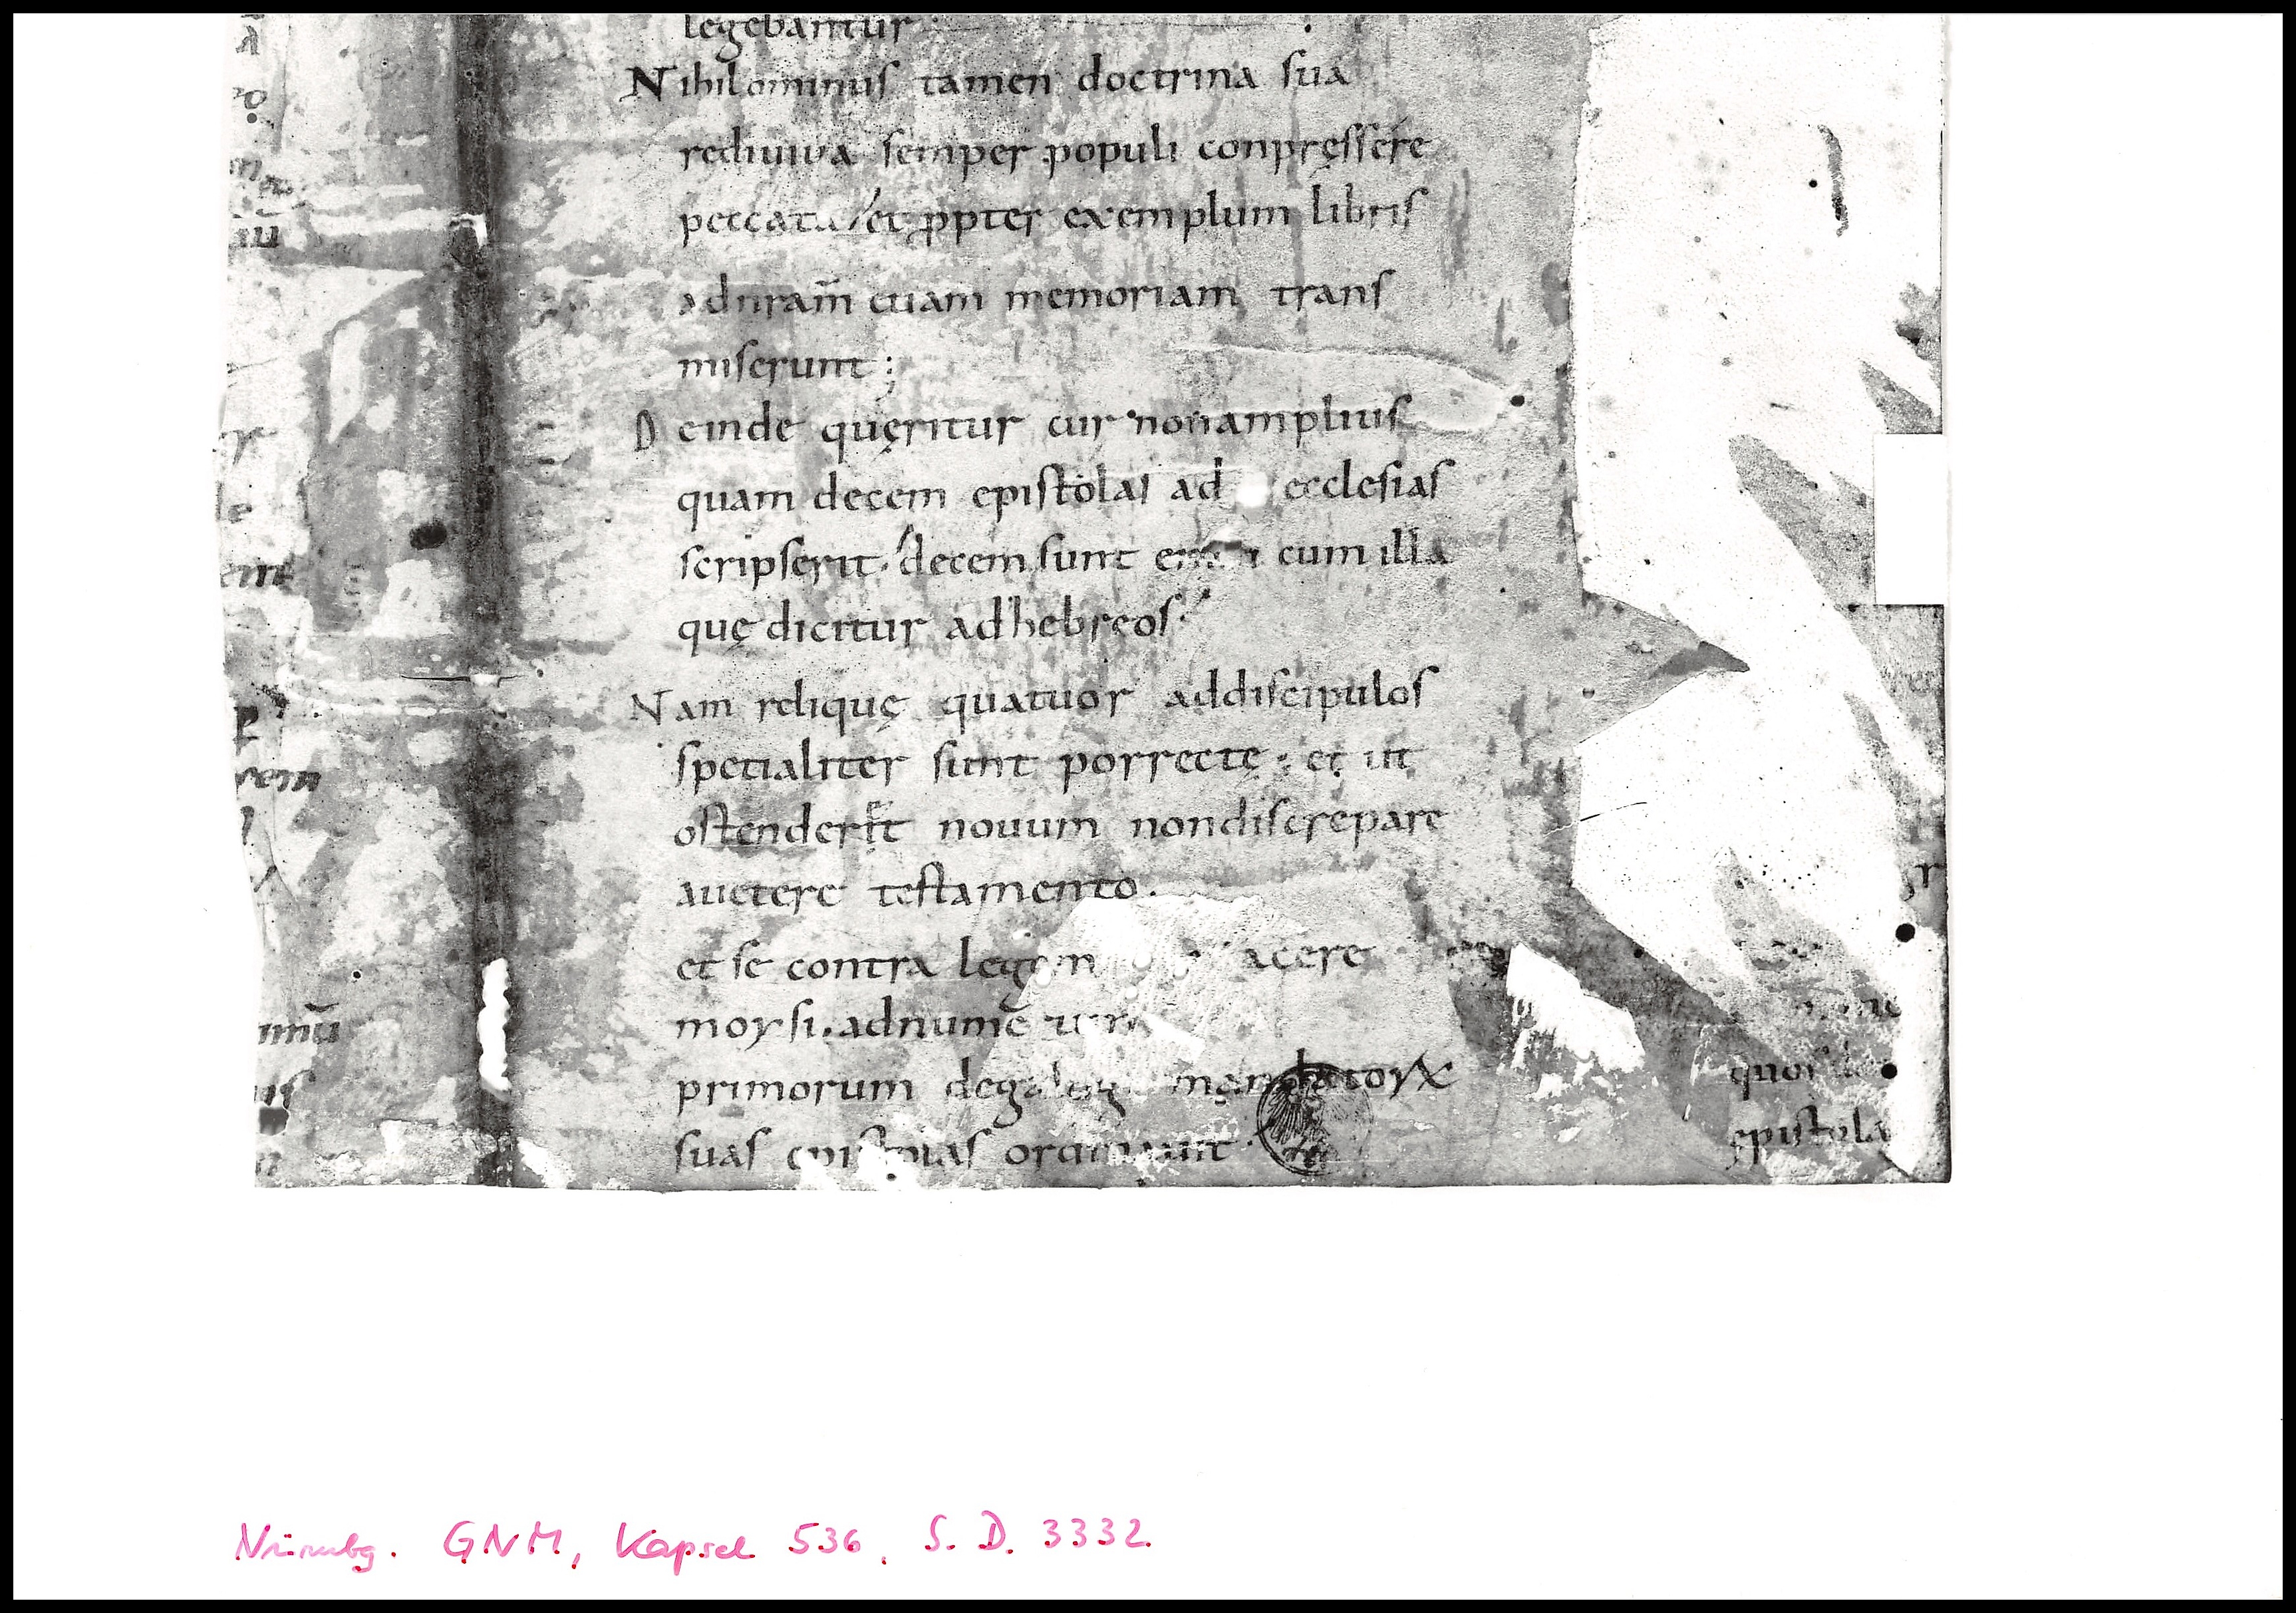 legebantur
Nihilominus tamen doctrina sua
rediuiua semper populi conpręssére
peccata et ꝓpter exemplum libris
ad nr̄am etiam memoriam trans
miserunt;
Deinde quęritur cur non amplius
quam decem epistolas ad ecclesias
scripserit. decem sunt enim cum illa
quę dicitur ad hebręos.
Nam reliquę quatuor ad discipulos
specialiter sunt porrectę. et ut
ostenderet nouum non discrepare
a uetere testamento.
et se contra legem acere
moysi. ad numerū
primorum mandatoꝝ
suas epistolas ordinauit
ent
rem
imū
quos
epistola
Nürnbg. GNM, Kapsel 536, S. D. 3332.